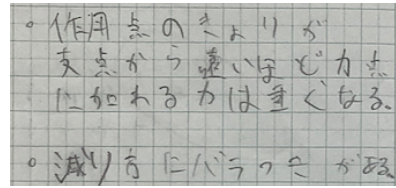 。作用点のきょりが
支点から遠いほど力点
に加わる力は重くなる。
。減り方にバラつきがある。